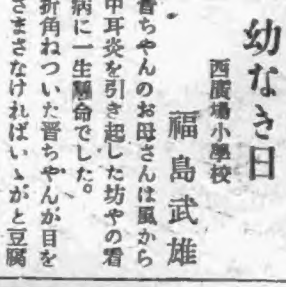 幼なき日
西廣場小學校
福島武雄
晋ちやんのお母さんは風から
中耳炎を引き起した坊やの看
病に一生懸命でした。
折角ねついた晋ちやんが目を
さまさなければいゝがと豆腐